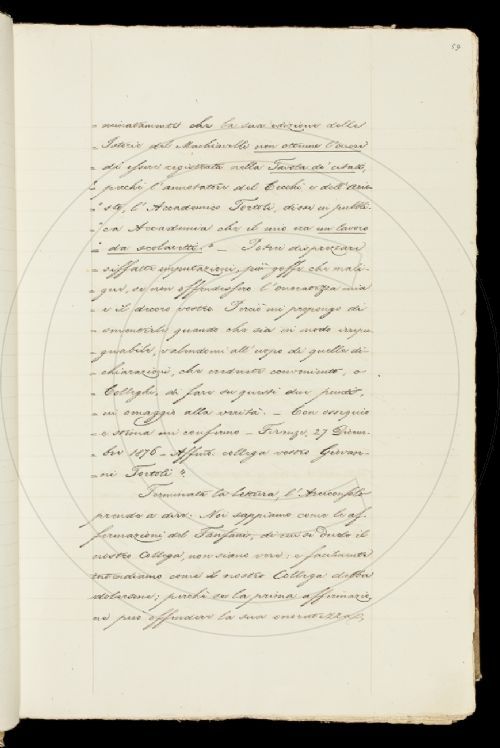 59
" minatamente che la sua edizione delle
" Istorie del Machiavelli non ottenne l'onore
" di essere registrata nella Tavola de' citati,
" perchè l'annotatore del Cecchi e dell'Ario-
" sto, l'Accademico Tortoli, disse in pubbli-
" ca Accademia che il mio era un lavoro
" da scolaretti." — Potrei disprezzare
" siffatte imputazioni, più goffe che mali-
" gne, se non offendessero l'onoratezza mia
" e il decoro vostro. Perciò mi propongo di
" smentirle quando che sia in modo irrepu-
" gnabile, valendomi all'uopo di quelle di-
" chiarazioni, che crederete conveniente, o
" Colleghi, di fare su questi due punti,
" in omaggio alla verità. — Con ossequio
" e stima mi confermo — Firenze, 27 Dicem-
" bre 1876 — Affmo. collega vostro Giovan-
" ni Tortoli ".
Terminata la lettura, l'Arciconsolo
prende a dire: Noi sappiamo come le af-
fermazioni del Fanfani, di cui si duole il
nostro Collega, non siano vere; e facilmente
intendiamo come il nostro Collega debba
dolersene; perchè se la prima affermazio-
ne può offendere la sua onoratezza,